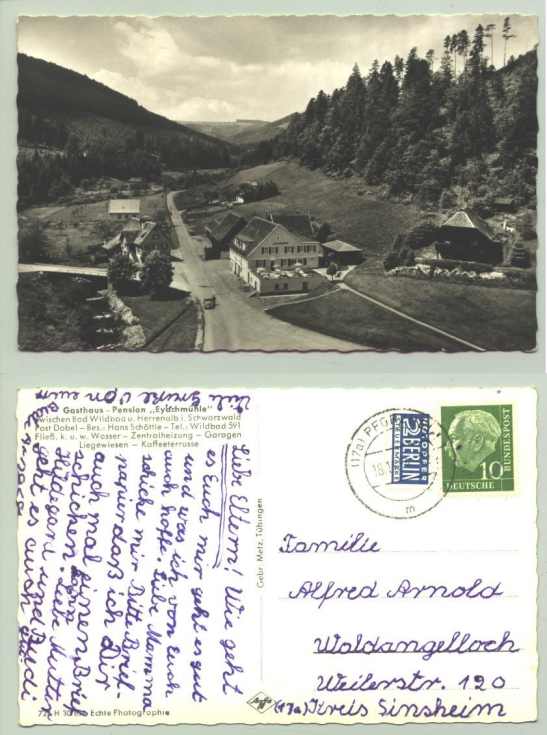 Gasthaus - Pension „Eyachmühle"
zwischen Bad Wildbad u. Herrenalb i. Schwarzwald
Post Dobel - Bes.: Hans Schöttle - Tel.: Wildbad 591
Fließ. k. u. w. Wasser - Zentralheizung - Garagen
Liegewiesen - Kaffeeterrasse
Liebe Eltern! Wie geht
es Euch mir geht es gut
und was ich von Euch
auch hoffe. Liebe Mamma
schicke mir Bitte Brief-
papier daß ich Dir
auch mal einen Brief
schicken kann. Liebe Mutter
Hildegard und
geht es auch gut
Viele Grüße von eure
Heidi
Gebr. Metz, Tübingen
Echte Photographie
NOTOPFER
2 BERLIN
STEUERMARKE
10
DEUTSCHE
BUNDESPOST
Familie
Alfred Arnold
Waldangelloch
Weilerstr. 120
(17a) Kreis Sinsheim